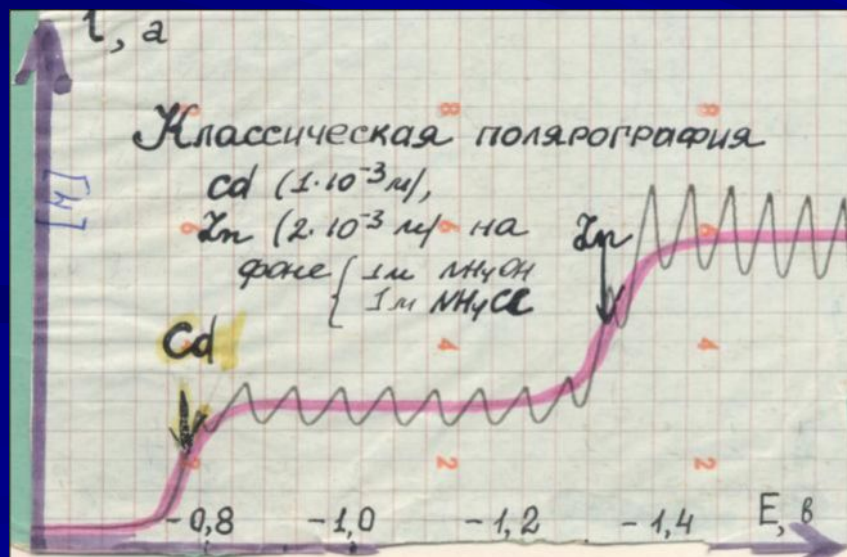 i, а
[M]
8
8
Классическая полярография
Cd (1·10⁻³ м),
Zn (2·10⁻³ м) на
фоне { 1м NH₄OH
1м NH₄Cl
6
6
6
Zn
Cd
4
4
2
2
2
-0,8 -1,0 -1,2 -1,4 E, в